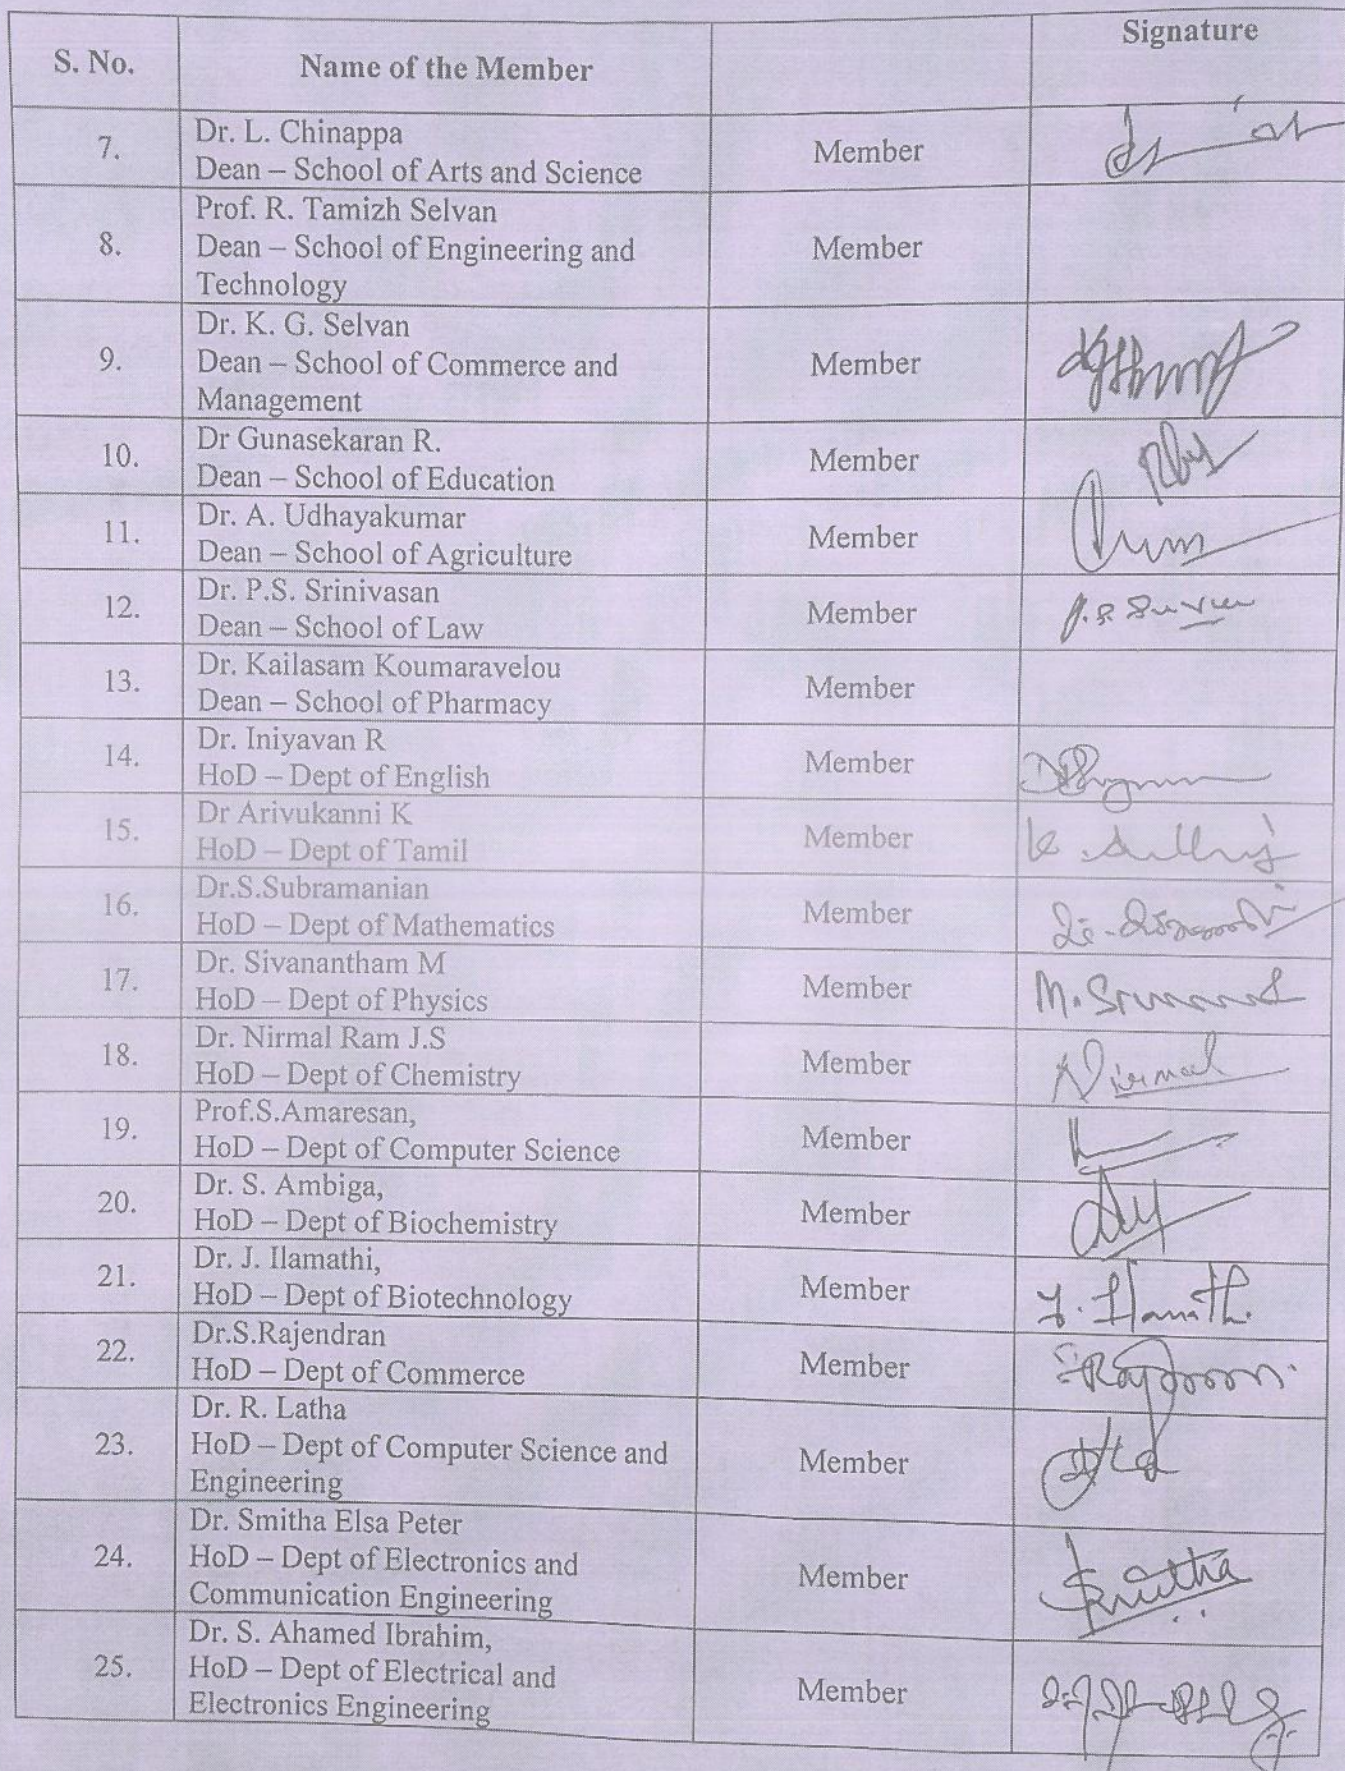 S. No.
Name of the Member
Signature
7.
Dr. L. Chinappa
Dean – School of Arts and Science
Member
8.
Prof. R. Tamizh Selvan
Dean – School of Engineering and
Technology
Member
9.
Dr. K. G. Selvan
Dean – School of Commerce and
Management
Member
10.
Dr Gunasekaran R.
Dean – School of Education
Member
11.
Dr. A. Udhayakumar
Dean – School of Agriculture
Member
12.
Dr. P.S. Srinivasan
Dean – School of Law
Member
13.
Dr. Kailasam Koumaravelou
Dean – School of Pharmacy
Member
14.
Dr. Iniyavan R
HoD – Dept of English
Member
15.
Dr Arivukanni K
HoD – Dept of Tamil
Member
16.
Dr.S.Subramanian
HoD – Dept of Mathematics
Member
17.
Dr. Sivanantham M
HoD – Dept of Physics
Member
18.
Dr. Nirmal Ram J.S
HoD – Dept of Chemistry
Member
Nirmal
19.
Prof.S.Amaresan,
HoD – Dept of Computer Science
Member
20.
Dr. S. Ambiga,
HoD – Dept of Biochemistry
Member
21.
Dr. J. Ilamathi,
HoD – Dept of Biotechnology
Member
22.
Dr.S.Rajendran
HoD – Dept of Commerce
Member
23.
Dr. R. Latha
HoD – Dept of Computer Science and
Engineering
Member
24.
Dr. Smitha Elsa Peter
HoD – Dept of Electronics and
Communication Engineering
Member
Smitha
25.
Dr. S. Ahamed Ibrahim,
HoD – Dept of Electrical and
Electronics Engineering
Member